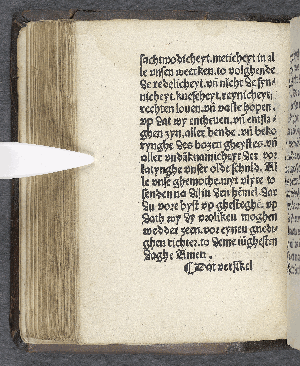 sachtmodicheyt. meticheyt in al
le vnsen wercken. to volghende
de redelicheyt. vñ nicht de syn
nicheyt. kuescheyt. reynicheyt.
rechten louen. vñ vaste hopen.
vp dat wy entheuen. vñ entsla
ghen syn. aller bende. vñ beko
rynghe des bozen gheystes. vñ
aller vndãknamicheyt der vor
latynghe vnser olde schuld.
le vnse ghemothe. myt vlyte to
senden na di in den hemel. dar
du vore byst vp ghesteghe. vp
dath wy dy vroliken moghen
wedder zeen. vor eynen gnedi
ghen richter. to deme iũghesten
daghe Amen.
Dat versikel